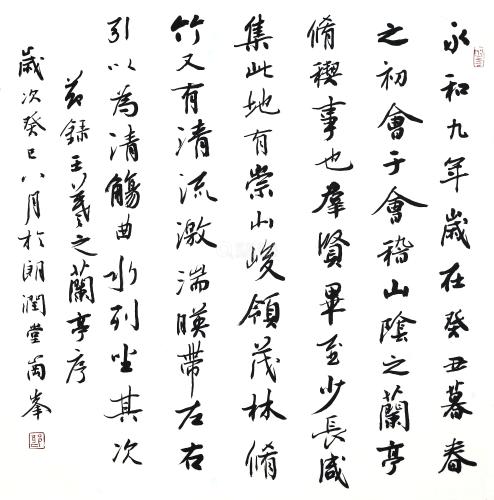 永和九年歲在癸丑暮春
之初會于會稽山陰之蘭亭
脩稧事也羣賢畢至少長咸
集此地有崇山峻領茂林脩
竹又有清流激湍暎帶左右
引以為清觴曲水列坐其次
節錄王羲之蘭亭序
歲次癸巳八月於朗潤堂崗峯